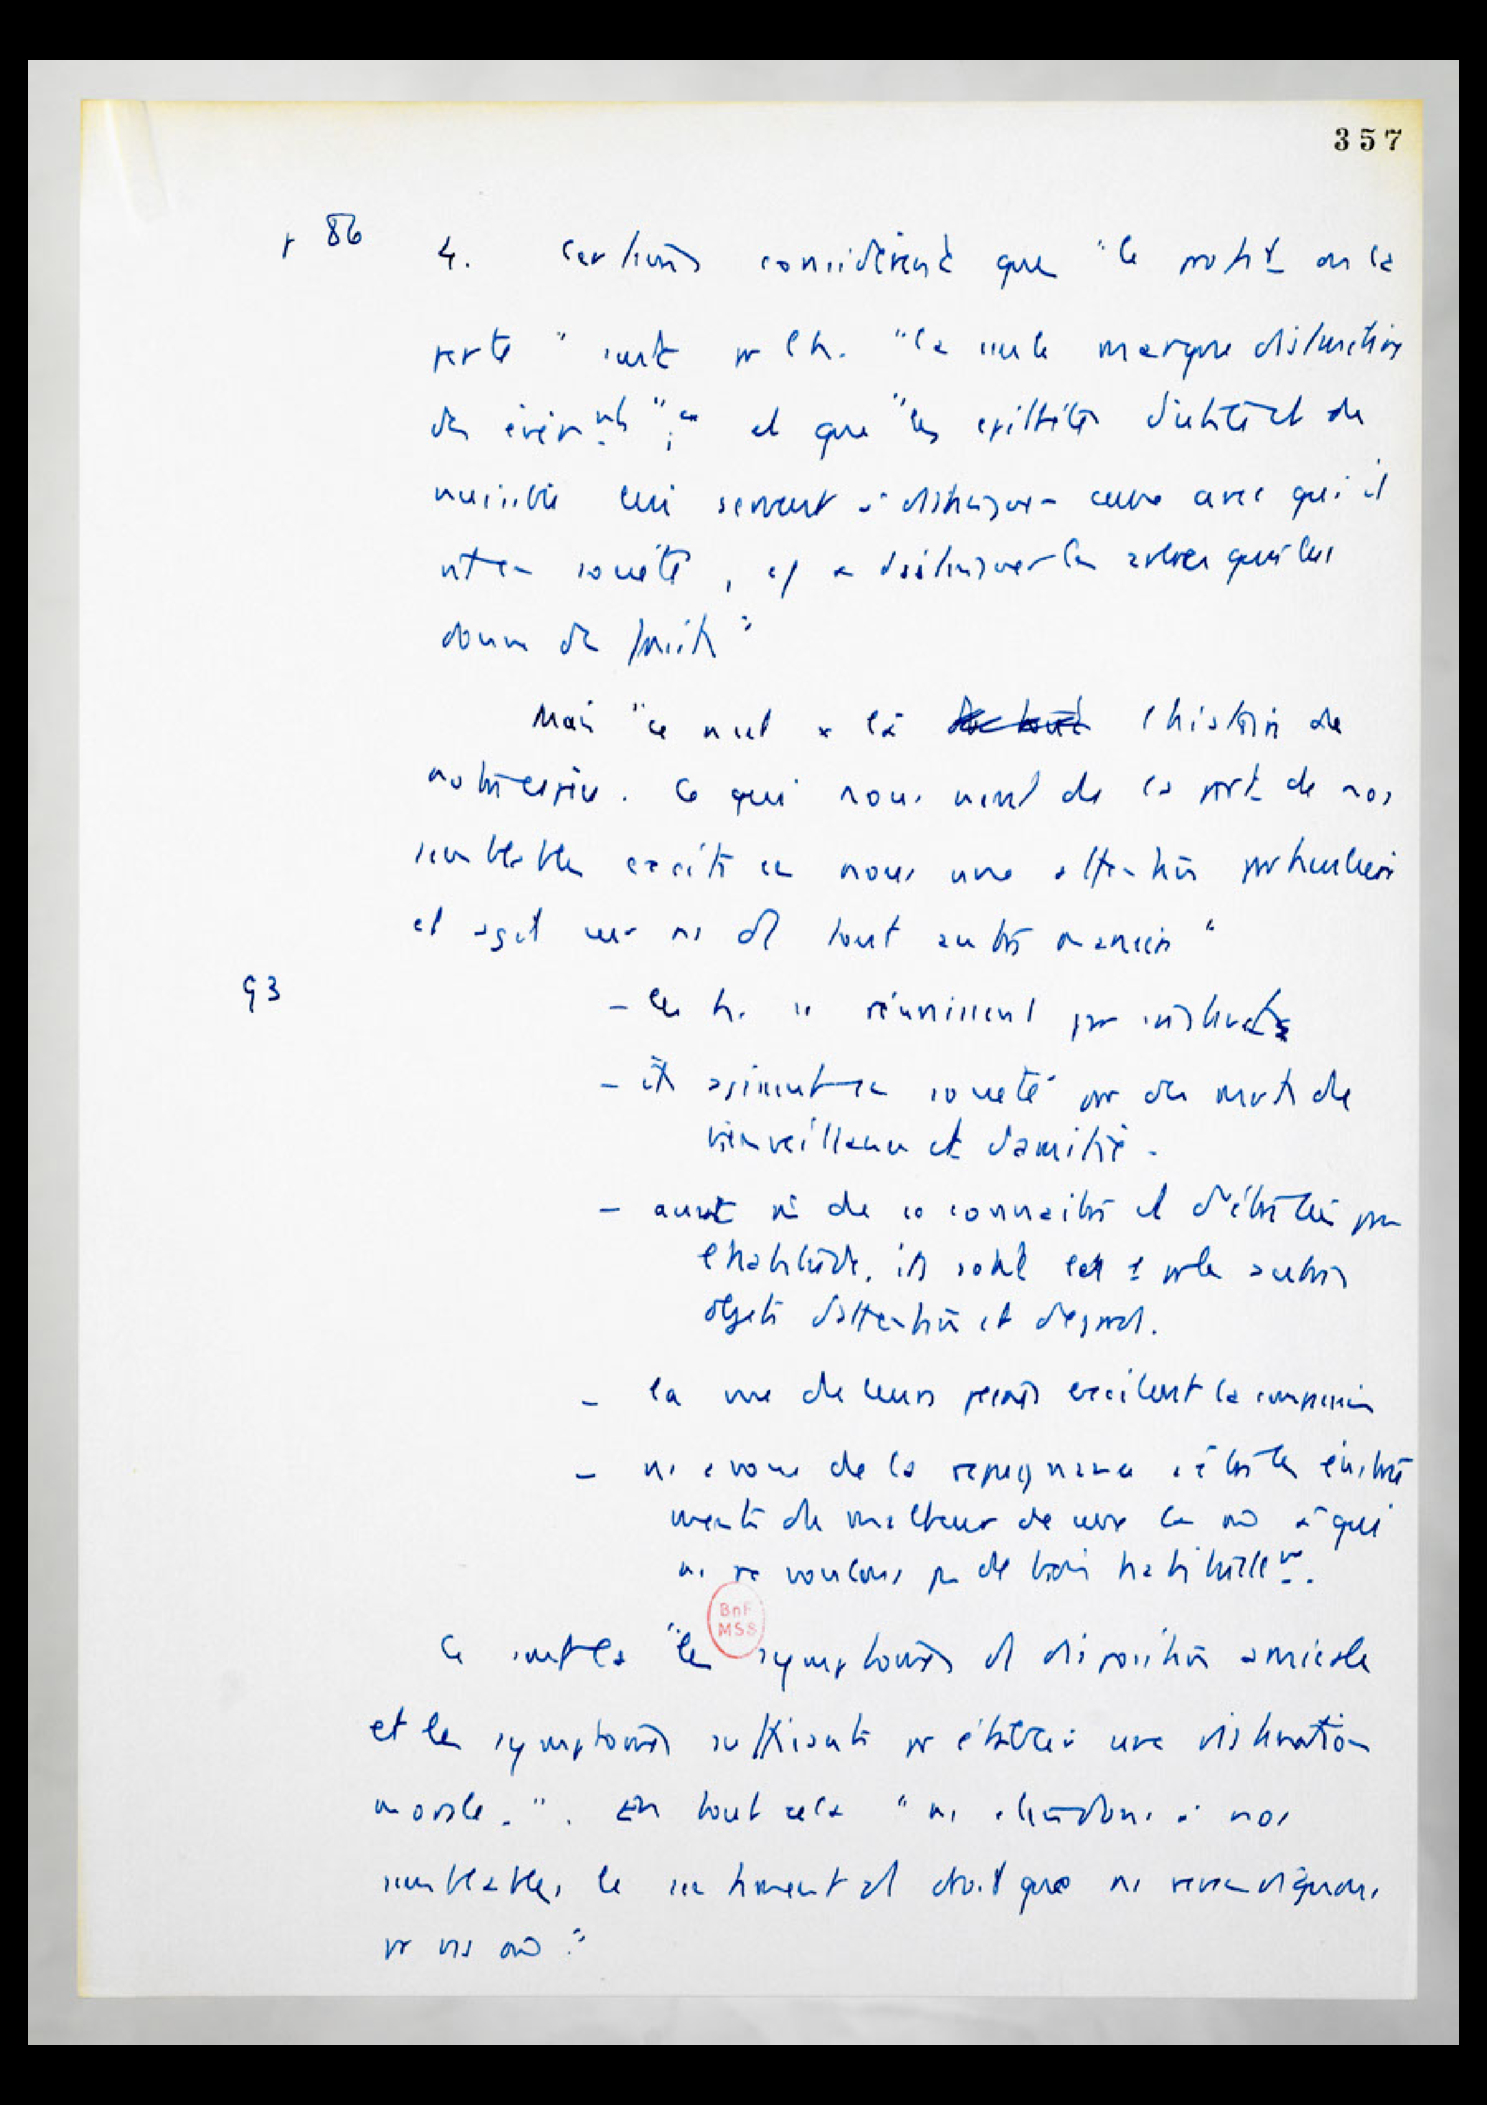 357
p 86 4. Certains considèrent que "le profit ou la
perte" sont pr l'h. "la seule marque distinctive
des événmts"; et que "les épithètes d'utile et de
nuisible lui servent à distinguer ceux avec qui il
vit en société, et à distinguer les arbres qui lui
donne des fruits"
Mais "ce n'est pas là l'histoire de
notre espèce. Ce qui nous vient de la part de nos
semblables excite en nous une attention particulière
et agit sur ns de tout autre manière"
93 - les h. se réunissent par instinct
- ils agissent en société par des motifs de
bienveillance et d'amitié.
- avant de se connaître et d'être liés par
l'habitude, ils sont les 1 pr les autres
objets d'attention et d'égard.
- la vue de leurs excitent la compassion
- ns avons de la répugnance à être les instru
ments du malheur de ceux à qui
ns ne voulons pas de bien
Ce sont là "les symptomes de disposition amicale
et les symptomes suffisants pr établir une distinction
morale.". En tout cela "ns étendons à nos
semblables le sentiment du droit que ns revendiquons
pr ns"
BnF
MSS